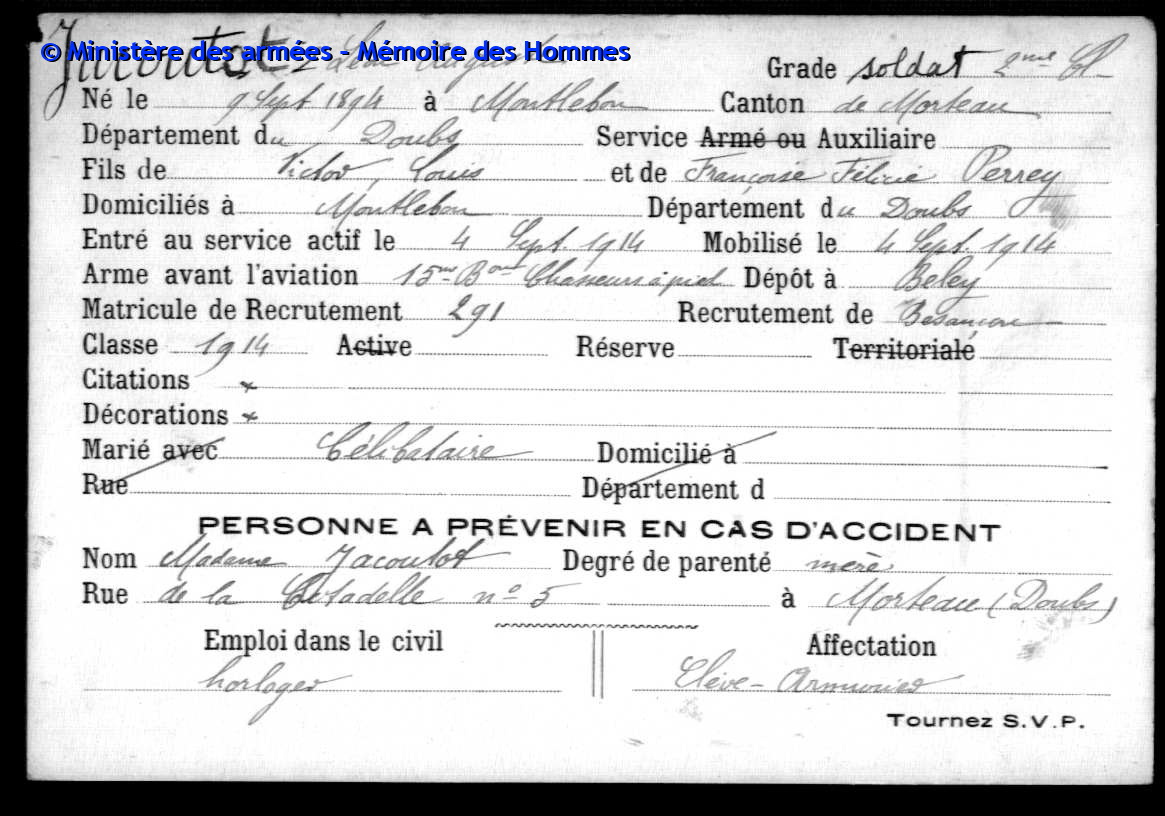 © Ministère des armées - Mémoire des Hommes
Jacoutot Léon Auguste Grade soldat 2me Cl.
Né le 9 Sept. 1894 à Montlebon Canton de Morteau
Département du Doubs Service Armé ou Auxiliaire
Fils de Victor, Louis et de Françoise Félicie Perrey
Domiciliés à Montlebon Département du Doubs
Entré au service actif le 4 Sept. 1914 Mobilisé le 4 Sept. 1914
Arme avant l'aviation 15me Bon Chasseurs à pied Dépôt à Beley
Matricule de Recrutement 291 Recrutement de Besançon
Classe 1914 Active Réserve Territoriale
Citations
Décorations
Marié avec Célibataire Domicilié à
Rue Département d
PERSONNE A PRÉVENIR EN CAS D'ACCIDENT
Nom Madame Jacoutot Degré de parenté mère
Rue de la Citadelle no 5 à Morteau (Doubs)
Emploi dans le civil Affectation
horloger Elève-Armurier
Tournez S.V.P.